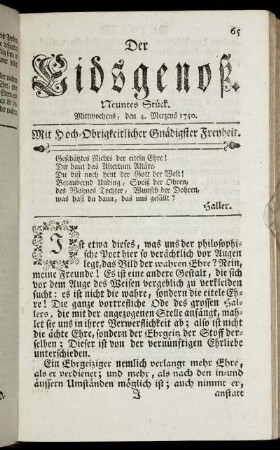 65
Der
Eidsgenoß.
Neuntes Stück.
Mittwochens, den 4. Merzens 1750.
Mit Hoch-Obrigkeitlicher Gnädigster Freyheit.
Geschätztes Nichts der eiteln Ehre!
Dir baut das Alterthum Altäre,
Du bist noch heut der Gott der Welt!
Bezaubernd Unding, Speiß der Ohren,
des Wahnes Tochter, Wunsch der Thoren,
was hast du dann, das uns gefällt?
Haller.
Ist etwa dieses, was uns der philosophi-
sche Poet hier so verächtlich vor Augen
legt, das Bild der wahren Ehre? Nein,
meine Freunde! Es ist eine andere Gestalt, die sich
vor dem Auge des Weisen vergeblich zu verkleiden
sucht: es ist nicht die wahre, sondern die eitele Eh-
re! Die ganze vortrefliche Ode des grossen Hal-
lers, die mit der angezogenen Stelle anfängt, mah-
let sie uns in ihrer Verwerflichkeit ab; also ist nicht
die ächte Ehre, sondern der Ehrgeitz der Stoff der-
selben; Dieser ist von der vernünftigen Ehrliebe
unterschieden.
Ein Ehrgeiziger nemlich verlangt mehr Ehre,
als er verdienet; und mehr, als nach den in-und
äussern Umständen möglich ist; auch nimmt er,
J
anstatt